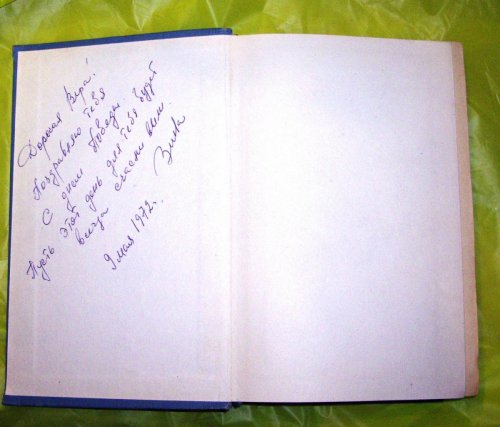 Дорогая Вера!
Поздравляю тебя
С днем Победы.
Пусть этот день для тебя будет
всегда счастливым.
Эмма
9 мая 1972г.